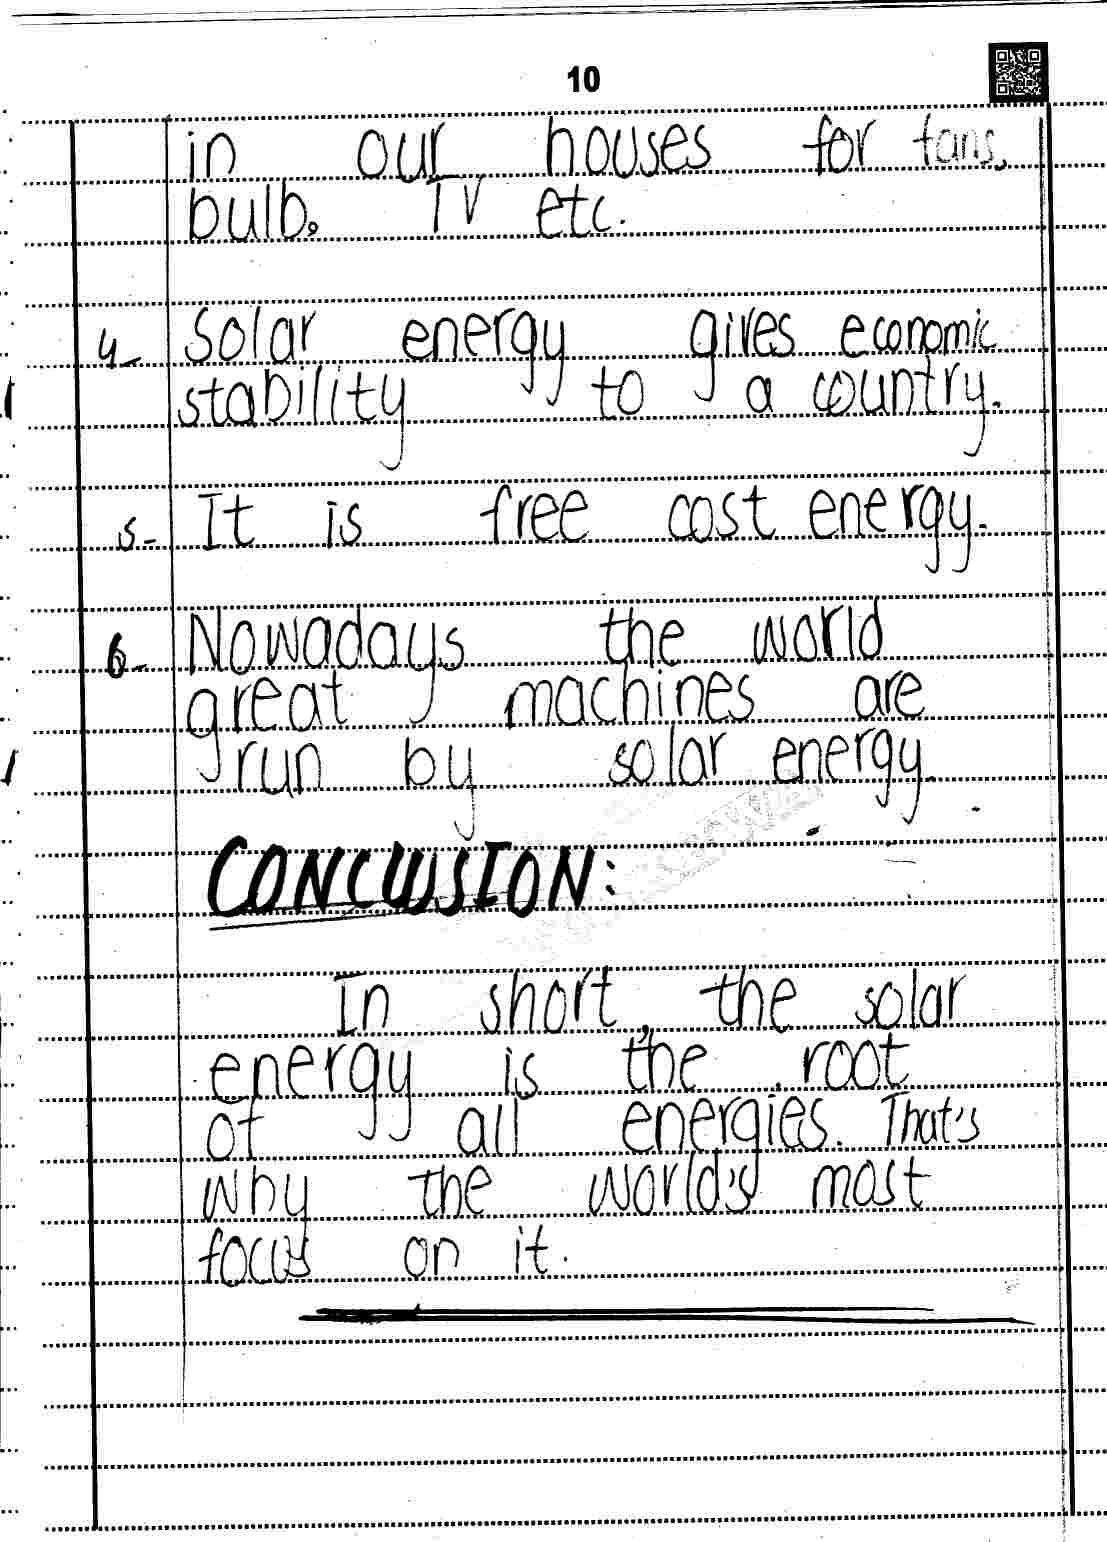 10
in our houses for fans,
bulb, TV etc.
4- Solar energy gives economic
stability to a country.
5- It is free cost energy.
6- Nowadays the world
great machines are
run by solar energy.
CONCLUSION:
In short, the solar
energy is the root
of all energies. That's
why the world's most
focus on it.